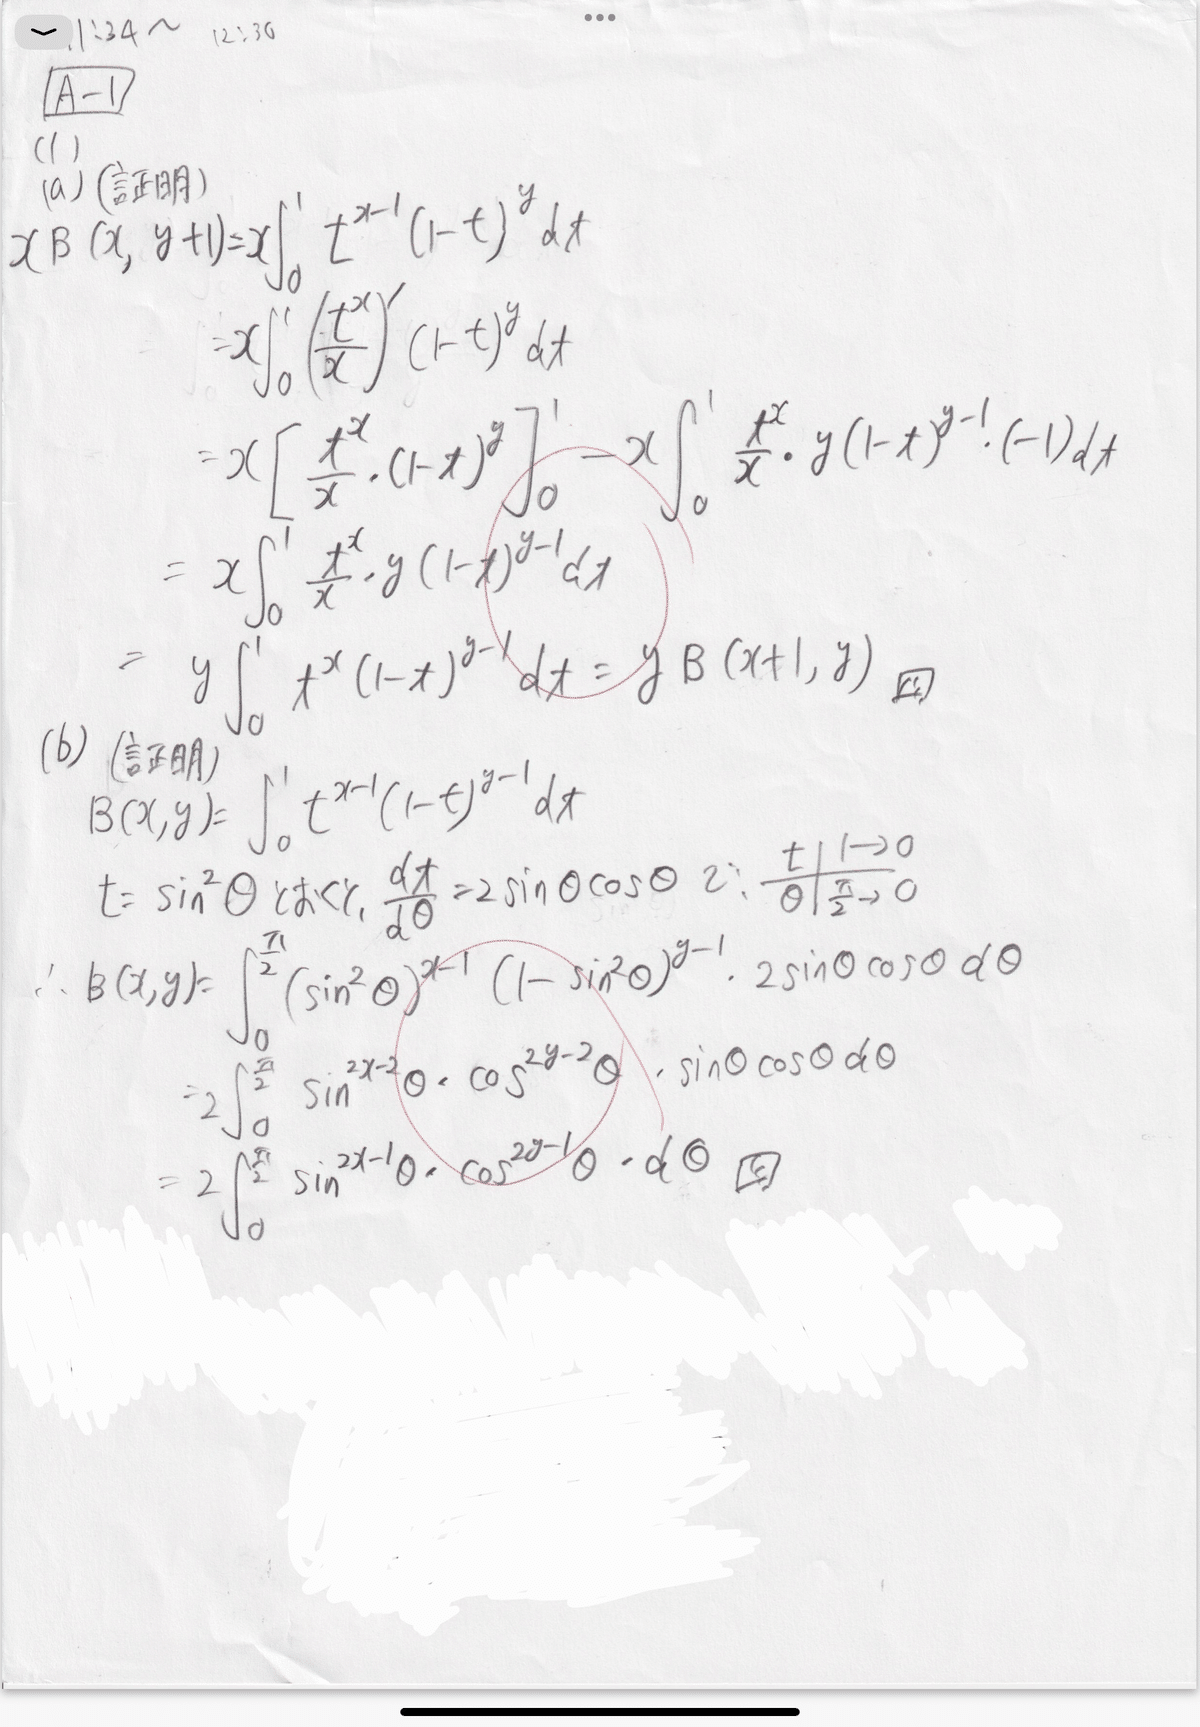 11:34〜 12:30
A-1
(1)
(a) (証明)
xB(x, y+1)=x∫₀¹ t^{x-1}(1-t)^y dt
=x∫₀¹ (t^x/x)′ (1-t)^y dt
=x[t^x/x・(1-t)^y]₀¹ -x∫₀¹ t^x/x・y(1-t)^{y-1}・(-1)dt
= x∫₀¹ t^x/x・y(1-t)^{y-1}dt
= y∫₀¹ t^x(1-t)^{y-1}dt = yB(x+1, y)
(b) (証明)
B(x,y)= ∫₀¹ t^{x-1}(1-t)^{y-1}dt
t= sin²θ とおくと, dt/dθ =2sinθcosθ で, t|1→0
θ|π/2→0
∴ B(x,y)= ∫₀^{π/2} (sin²θ)^{x-1} (1-sin²θ)^{y-1}・2sinθcosθdθ
=2∫₀^{π/2} sin^{2x-2}θ・cos^{2y-2}θ・sinθcosθdθ
= 2∫₀^{π/2} sin^{2x-1}θ・cos^{2y-1}θ・dθ